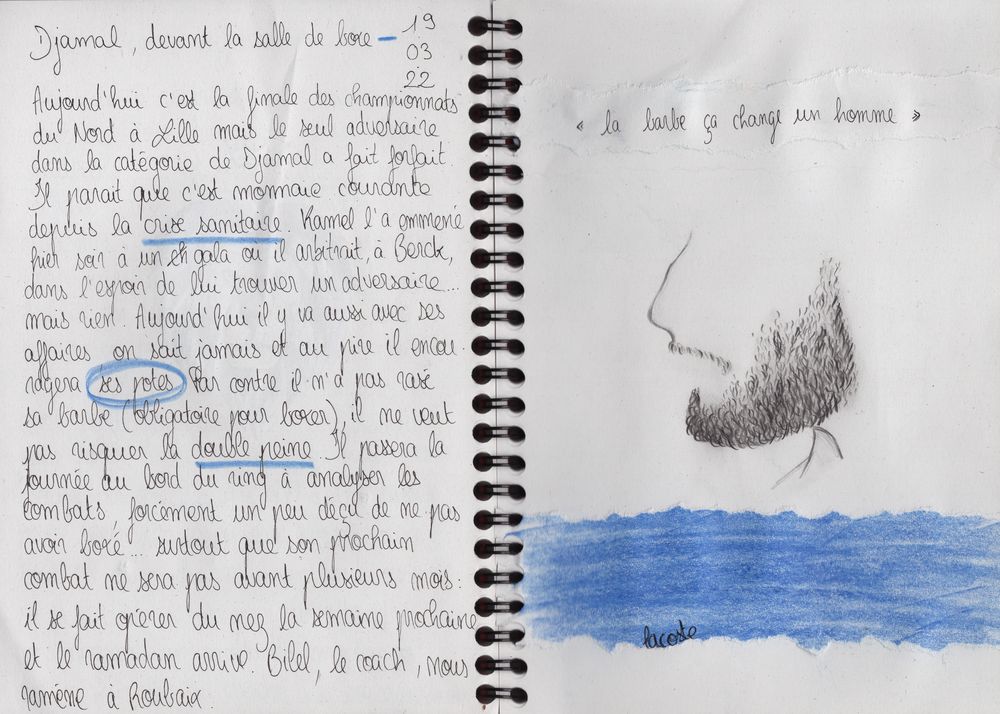 Djamal, devant la salle de boxe — 19
03
22
Aujourd'hui c'est la finale des championnats
du Nord à Lille mais le seul adversaire
dans la catégorie de Djamal a fait forfait.
Il parait que c'est monnaie courante
depuis la crise sanitaire. Kamel l'a emmené
hier soir à un gala où il arbitrait, à Berck,
dans l'espoir de lui trouver un adversaire...
mais rien. Aujourd'hui il y va aussi avec ses
affaires on sait jamais et au pire il encou-
ragera ses potes. Par contre il n'a pas rasé
sa barbe (obligatoire pour boxer), il ne veut
pas risquer la double peine. Il passera la
journée au bord du ring à analyser les
combats, forcément un peu déçu de ne pas
avoir boxé... surtout que son prochain
combat ne sera pas avant plusieurs mois:
il se fait opérer du nez la semaine prochaine
et le ramadan arrive. Bilel, le coach, nous
ramène à Roubaix.
« la barbe ça change un homme »
lacoste